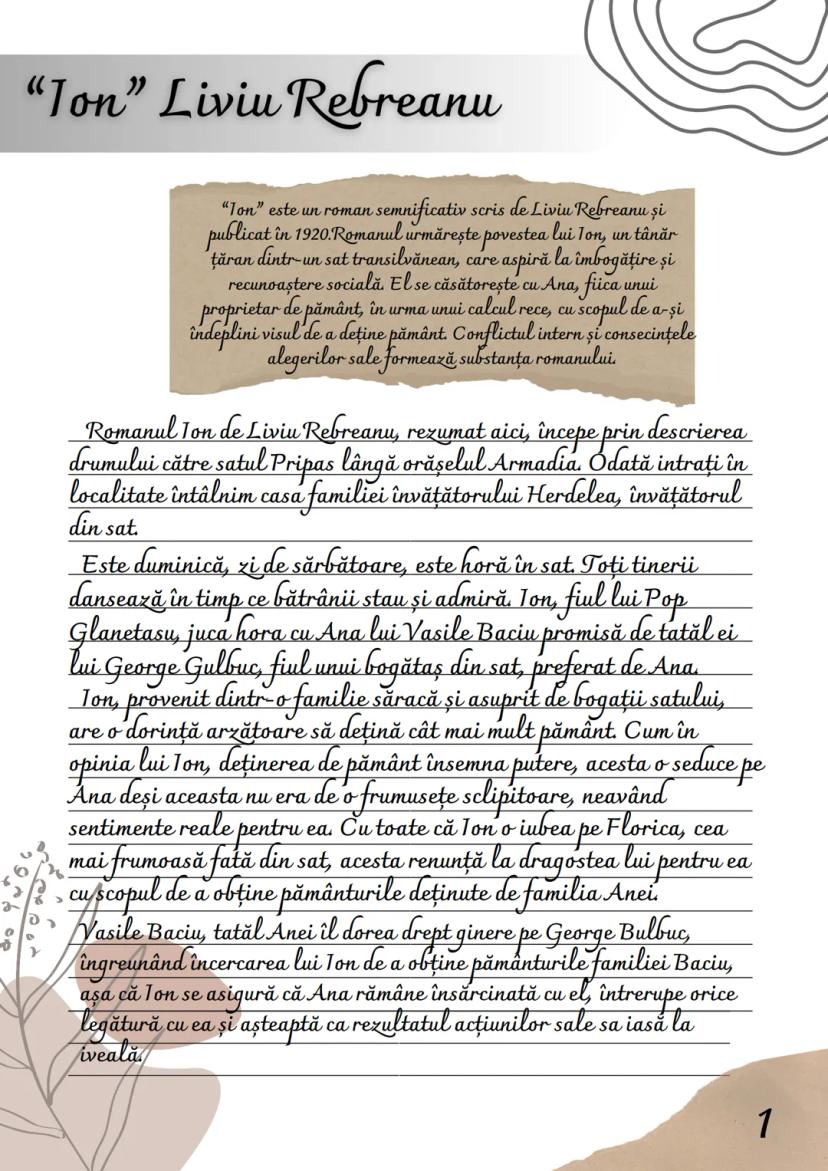 “Ion” Liviu Rebreanu
“Ion” este un roman semnificativ scris de Liviu Rebreanu și
publicat în 1920.Romanul urmărește povestea lui Ion, un tânăr
țăran dintr-un sat transilvănean, care aspiră la îmbogățire și
recunoaștere socială. El se căsătorește cu Ana, fiica unui
proprietar de pământ, în urma unui calcul rece, cu scopul de a-și
îndeplini visul de a deține pământ. Conflictul intern și consecințele
alegerilor sale formează substanța romanului.
Romanul Ion de Liviu Rebreanu, rezumat aici, începe prin descrierea
drumului către satul Pripas lângă orășelul Armadia. Odată intrați în
localitate întâlnim casa familiei învățătorului Herdelea, învățătorul
din sat.
Este duminică, zi de sărbătoare, este horă în sat. Toți tinerii
dansează în timp ce bătrânii stau și admiră. Ion, fiul lui Pop
Glanetasu, juca hora cu Ana lui Vasile Baciu promisă de tatăl ei
lui George Gulbuc, fiul unui bogătaș din sat, preferat de Ana.
Ion, provenit dintr-o familie săracă și asuprit de bogații satului,
are o dorință arzătoare să dețină cât mai mult pământ. Cum în
opinia lui Ion, deținerea de pământ însemna putere, acesta o seduce pe
Ana deși aceasta nu era de o frumusețe sclipitoare, neavând
sentimente reale pentru ea. Cu toate că Ion o iubea pe Florica, cea
mai frumoasă fată din sat, acesta renunță la dragostea lui pentru ea
cu scopul de a obține pământurile deținute de familia Anei.
Vasile Baciu, tatăl Anei îl dorea drept ginere pe George Bulbuc,
îngreunând încercarea lui Ion de a obține pământurile familiei Baciu,
așa că Ion se asigură că Ana rămâne însărcinată cu el, întrerupe orice
legătură cu ea și așteaptă ca rezultatul acțiunilor sale sa iasă la
iveală.
1